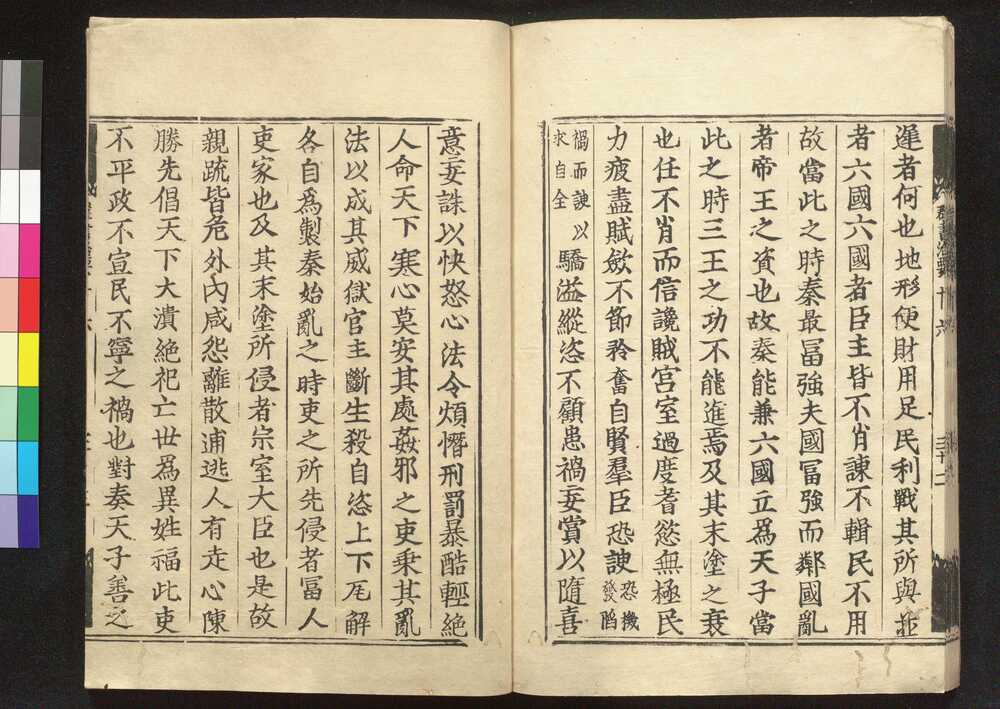 遲者何也地形便財用足民利戰其所與並
者六國六國者臣主皆不肖謀不輯民不用
故當此之時秦最冨強夫國冨強而鄰國亂
者帝王之資也故秦能兼六國立爲天子當
此之時三王之功不能進焉及其末塗之衰
也任不肖而信讒賊宮室過度耆慾無極民
力疲盡賦斂不節矜奮自賢羣臣恐諛恐機發陷
禍而諛以求自全驕溢縱恣不顧患禍妄賞以隨喜
意妄誅以快怒心法令煩憯刑罰暴酷輕絶
人命天下寒心莫安其處姦邪之吏乗其亂
法以成其威獄官主斷生殺自恣上下瓦解
各自爲製秦始亂之時吏之所先侵者冨人
吏家也及其末塗所侵者宗室大臣也是故
親疏皆危外內咸怨離散逋逃人有走心陳
勝先倡天下大潰絶祀亡世爲異姓福此吏
不平政不宣民不寧之禍也對奏天子善之
羣書治要 卄六